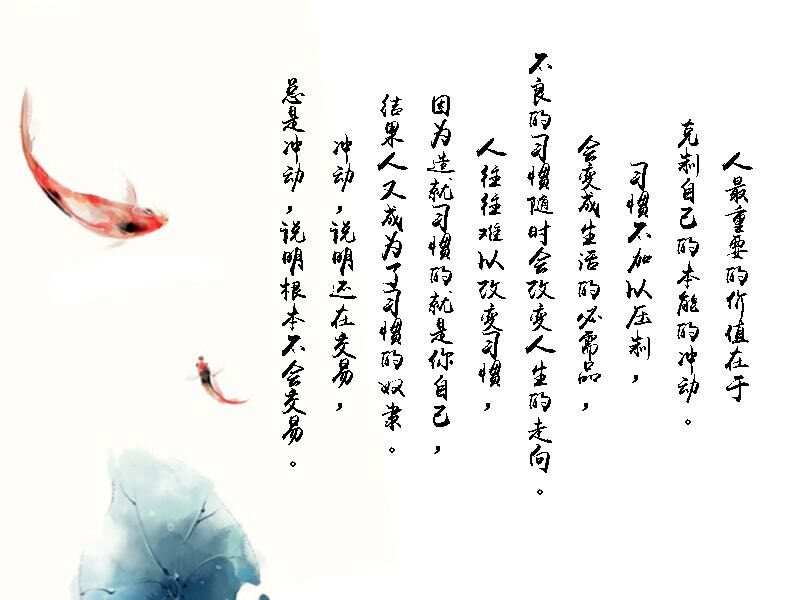 人最重要的价值在于
克制自己的本能的冲动。
习惯不加以压制，
会变成生活的必需品，
不良的习惯随时会改变人生的走向。
人往往难以改变习惯，
因为造就习惯的就是你自己，
结果人又成为了习惯的奴隶。
冲动，说明还在交易，
总是冲动，说明根本不会交易。